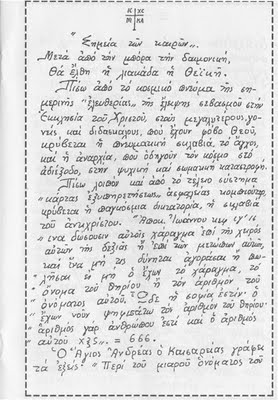 "Σημεῖα τῶν καιρῶν".
Μετά ἀπό τήν μπόρα τήν δαιμονική,
Θά ἔλθη ἡ λιακάδα ἡ Θεϊκή.
Πίσω ἀπό τό κοσμικό πνεῦμα τῆς ση-
μερινῆς "ἐλευθερίας" τῆς ἔλειψης σεβασμοῦ στήν
Ἐκκλησία τοῦ Χριστοῦ, στούς μεγαλυτέρους, γο-
νεῖς καί διδασκάλους, πού ἔχουν φόβο Θεοῦ,
κρύβεται ἡ πνευματική σκλαβιά, τό ἄγχος,
καί ἡ ἀναρχία, πού ὁδηγοῦν τόν κόσμο στό
ἀδιέξοδο, στήν ψυχική καί σωματική καταστροφή.
Πίσω λοιπόν καί ἀπό τό τέλειο σύστημα
"κάρτας ἐξυπηρετήσεως", ἀσφαλείας κομπιοῦτερ,
κρύβεται ἡ παγκόσμια δικτατορία, ἡ σκλαβιά
τοῦ ἀντιχρίστου. Ἰωάννου κεφ. ιγ' 16
"ἵνα δώσουσιν αὐτοῖς χάραγμα ἐπί τῆς χειρός
αὐτῶν τῆς δεξιᾶς ἤ ἐπί τῶν μετώπων αὐτῶν,
καί ἵνα μή τις δύνηται ἀγοράσαι ἤ πω-
λῆσαι εἰ μή ὁ ἔχων τό χάραγμα, τό
ὄνομα τοῦ θηρίου ἤ τόν ἀριθμόν τοῦ
ὀνόματος αὐτοῦ. Ὧδε ἡ σοφία ἐστίν· ὁ
ἔχων νοῦν ψηφισάτω τόν ἀριθμόν τοῦ θηρίου·
ἀριθμός γάρ ἀνθρώπου ἐστί καί ὁ ἀριθμός
αὐτοῦ χξς". = 666.
Ὁ Ἅγιος Ἀνδρέας ὁ Καισαρίας γράφει
τά ἑξῆς: "Περί τοῦ μιαροῦ ὀνόματος τοῦ